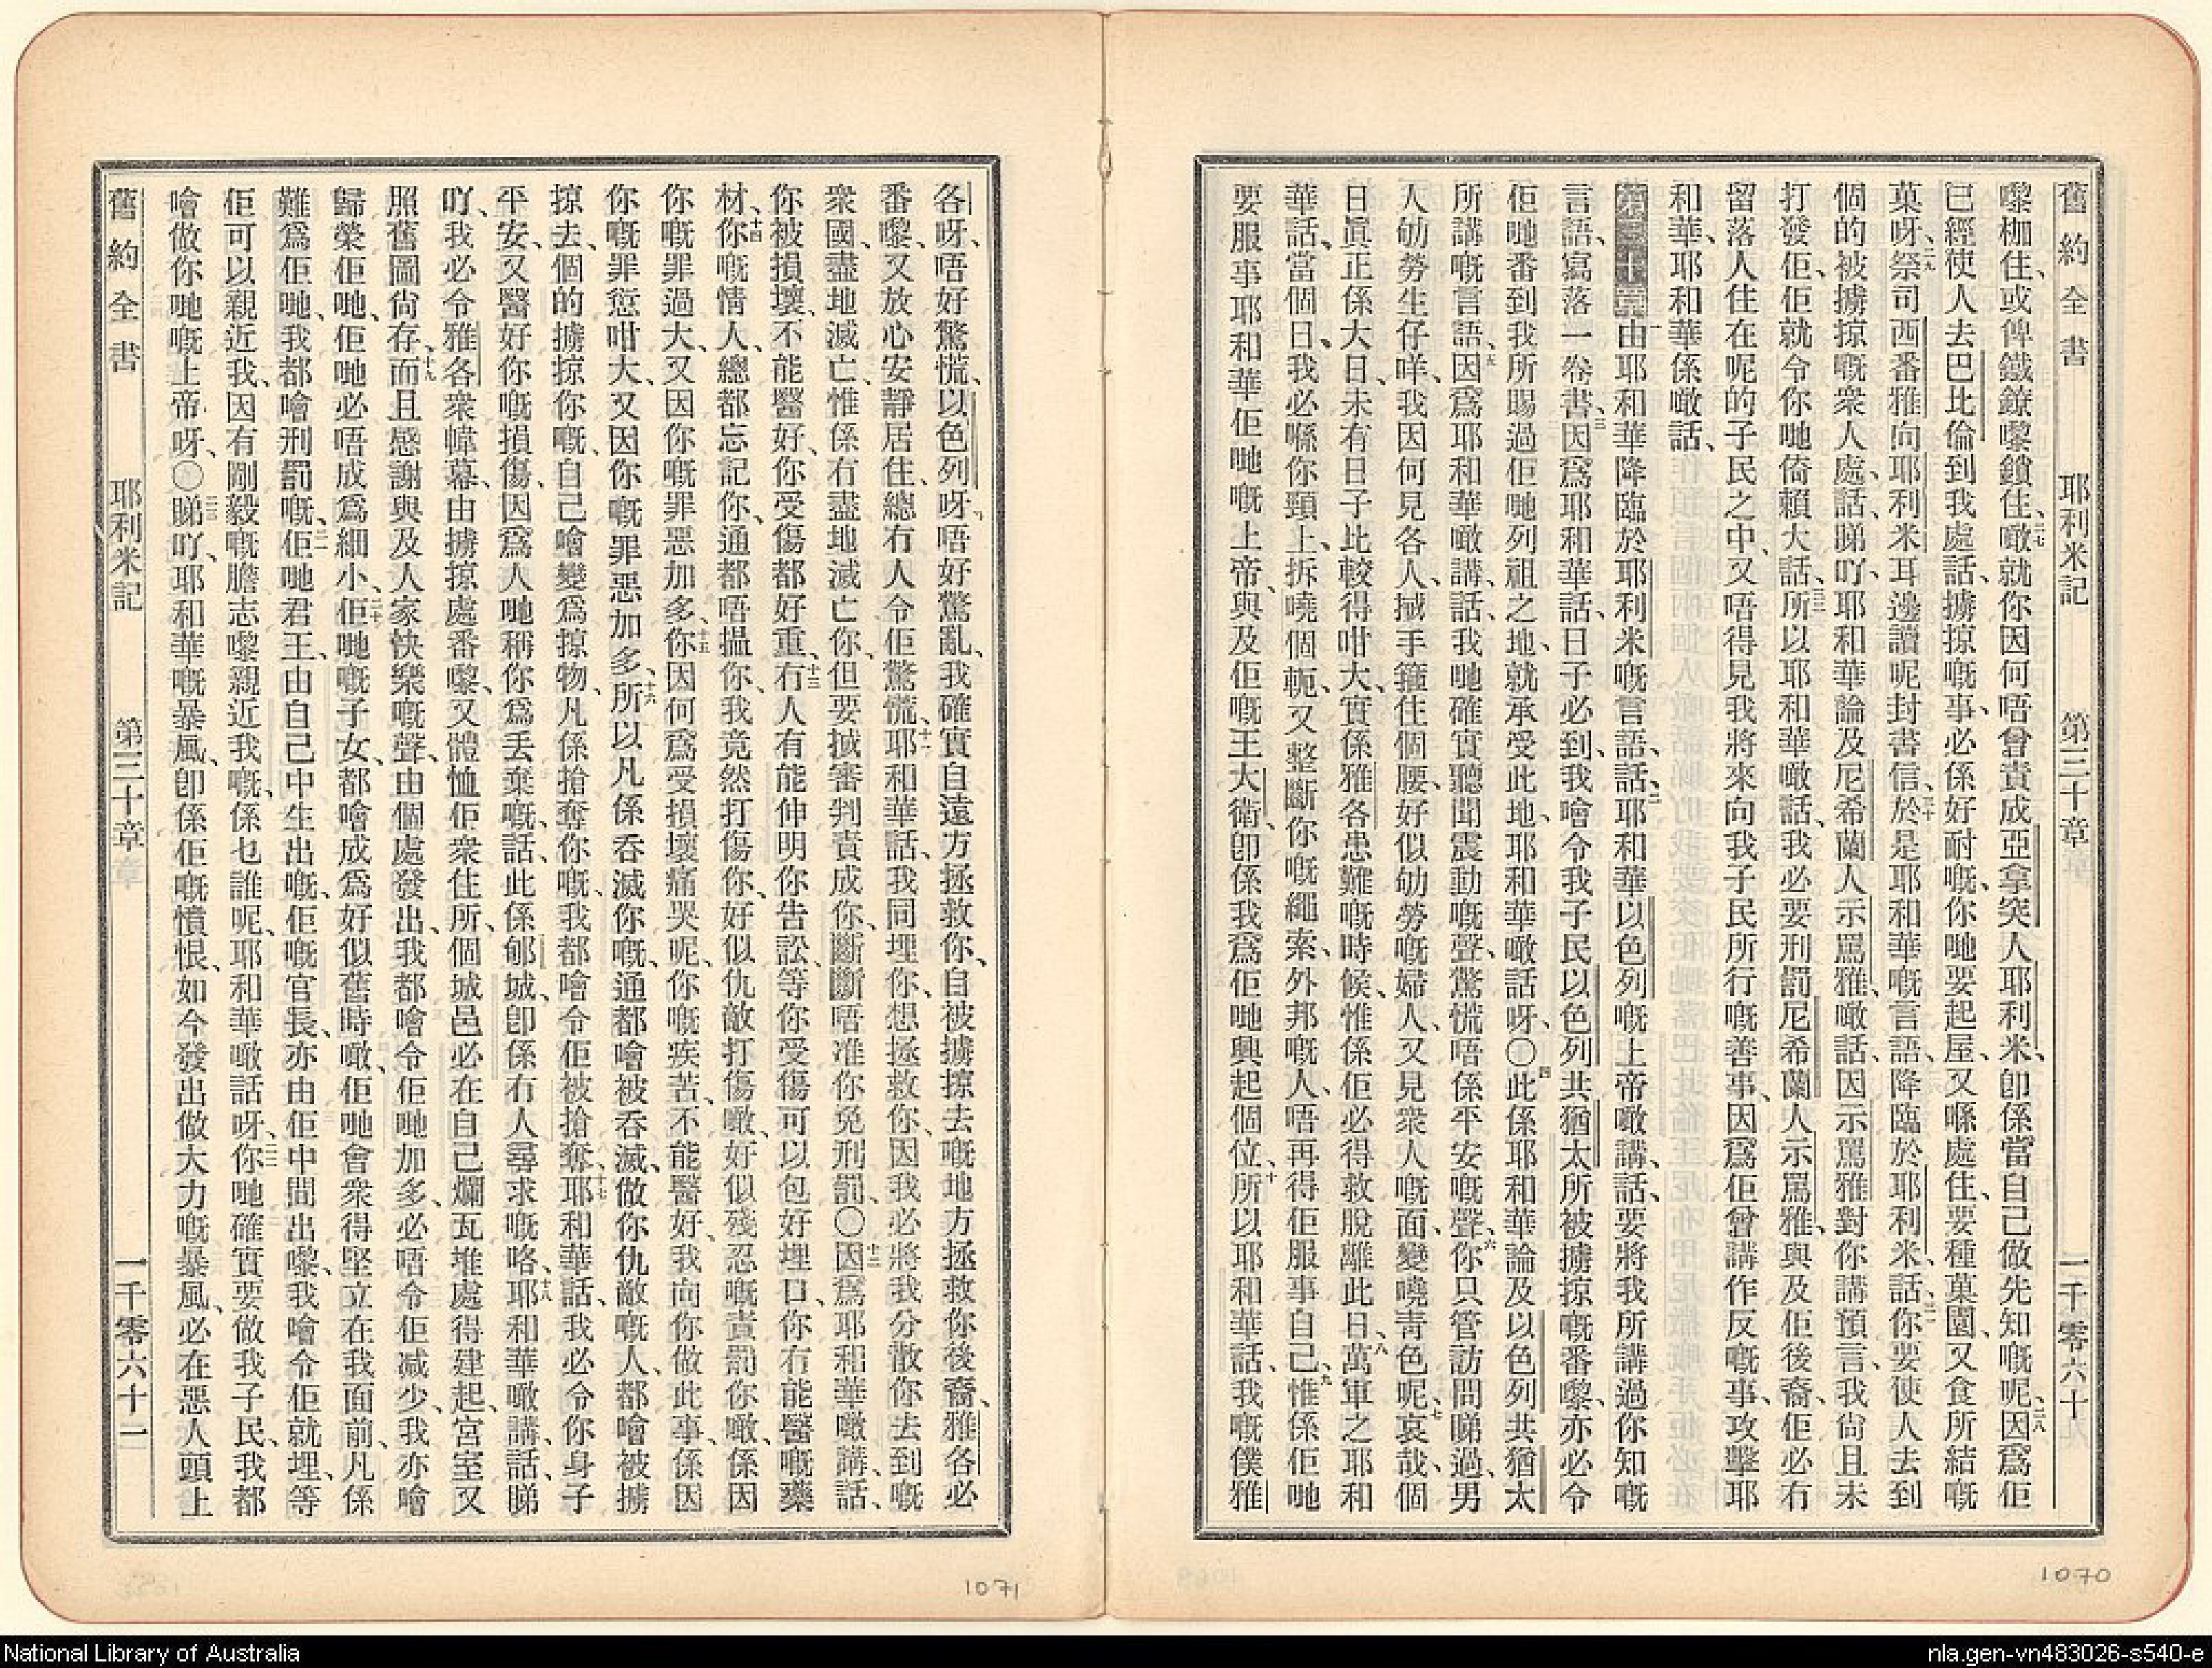 舊約全書 耶利米記 第三十章 一千零六十
嚟枷住、或俾鐵鐐嚟鎖住、二七噉就你因何唔曾責成亞拿突人耶利米、卽係當自己做先知嘅呢、二八因爲佢
已經使人去巴比倫到我處話、擄掠嘅事、必係好耐嘅、你哋要起屋、又喺處住、要種菓園、又食所結嘅
菓呀、二九祭司西番雅向耶利米耳邊讀呢封書信、三十於是耶和華嘅言語、降臨於耶利米、話、三一你要使人去到
個的被擄掠嘅衆人處、話、睇吖、耶和華論及尼希蘭人示罵雅、噉話、因示罵雅對你講預言、我尙且未
打發佢、佢就令你哋倚賴大話、三二所以耶和華噉話、我必要刑罰尼希蘭人示罵雅、與及佢後裔、佢必冇
留落人住在呢的子民之中、又唔得見我將來向我子民所行嘅善事、因爲佢曾講作反嘅事、攻擊耶
和華、耶和華係噉話、
第三十章 一由耶和華降臨於耶利米嘅言語、話、二耶和華以色列嘅上帝噉講、話、要將我所講過你知嘅
言語、寫落一卷書、三因爲耶和華話、日子必到、我噲令我子民以色列共猶太所被擄掠嘅番嚟、亦必令
佢哋番到我所賜過佢哋列祖之地、就承受此地、耶和華噉話呀、〇四此係耶和華論及以色列共猶太
所講嘅言語、五因爲耶和華噉講、話、我哋確實聽聞震動嘅聲、驚慌唔係平安嘅聲、六你只管訪問睇過、男
人劬勞生仔咩、我因何見各人、搣手箍住個腰、好似劬勞嘅婦人、又見衆人嘅面、變嘵靑色呢、七哀哉、個
日眞正係大日、未有日子比較得咁大、實係雅各患難嘅時候、惟係佢必得救脫離此日、八萬軍之耶和
華話、當個日、我必喺你頸上、拆嘵個軛、又整斷你嘅繩索、外邦嘅人、唔再得佢服事自己、九惟係佢哋
要服事耶和華佢哋嘅上帝、與及佢嘅王大衛、卽係我爲佢哋興起個位、十所以耶和華話、我嘅僕雅
1070
各呀、唔好驚慌、以色列呀、唔好驚亂、我確實自遠方拯救你、自被擄掠去嘅地方拯救你後裔、雅各必
番嚟、又放心安靜居住、總冇人令佢驚慌、十一耶和華話、我同埋你、想拯救你、因我必將我分散你去到嘅
衆國、盡地滅亡、惟係冇盡地滅亡你、但要搣審判責成你、斷斷唔准你免刑罰、〇十二因爲耶和華噉講、話、
你被損壞、不能醫好、你受傷都好重、十三冇人有能伸明你告訟、等你受傷可以包好埋口、你冇能醫嘅藥
材、十四你嘅情人、總都忘記你、通都唔搵你、我竟然打傷你、好似仇敵打傷噉、好似殘忍嘅責罰你噉、係因
你嘅罪過大、又因你嘅罪惡加多、十五你因何爲受損壞痛哭呢、你嘅疾苦、不能醫好、我向你做此事、係因
你嘅罪愆咁大、又因你嘅罪惡加多、十六所以凡係吞滅你嘅、通都噲被吞滅、做你仇敵嘅人、都噲被擄
掠去、個的擄掠你嘅、自己噲變爲掠物、凡係搶奪你嘅、我都噲令佢被搶奪、十七耶和華話、我必令你身子
平安、又醫好你嘅損傷、因爲人哋稱你爲丟棄嘅、話、此係郇城、卽係冇人尋求嘅咯、十八耶和華噉講、話、睇
吖、我必令雅各衆幃幕、由擄掠處番嚟、又體恤佢衆住所、個城邑必在自己爛瓦堆處得建起、宮室又
照舊圖尙存、十九而且感謝與及人家快樂嘅聲、由個處發出、我都噲令佢哋加多、必唔令佢減少、我亦噲
歸榮佢哋、佢哋必唔成爲細小、二十佢哋嘅子女、都噲成爲好似舊時噉、佢哋會衆得堅立在我面前、凡係
難爲佢哋、我都噲刑罰嘅、二一佢哋君王、由自己中生出嘅、佢嘅官長、亦由佢中間出嚟、我噲令佢就埋、等
佢可以親近我、因有剛毅嘅膽志嚟親近我嘅、係乜誰呢、耶和華噉話呀、二二你哋確實要做我子民、我都
噲做你哋嘅上帝呀、〇二三睇吖、耶和華嘅暴風、卽係佢嘅憤恨、如今發出做大力嘅暴風、必在惡人頭上
舊約全書 耶利米記 第三十章 一千零六十一
1071
National Library of Australia
nla.gen-vn483026-s540-e